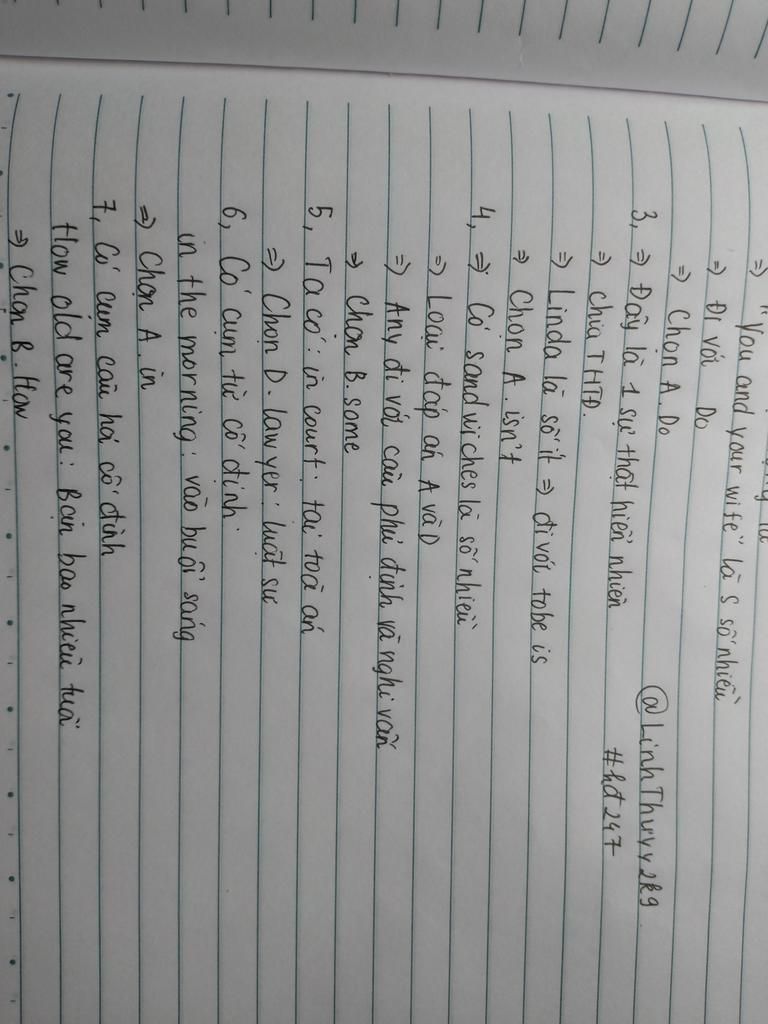 là
=) "You and your wife" là S số nhiều
=) Đi với Do
=) Chọn A. Do
3, =) Đây là 1 sự thật hiển nhiên
=) chia THTĐ.
=) Linda là số ít =) đi với tobe is
=) Chọn A. isn't
4, =) Có sandwiches là số nhiều
=) Loại đáp án A và D
=) Any đi với câu phủ định và nghi vấn
=) Chọn B. some
5, Ta có: in court: tại toà án
=) Chọn D. lawyer: luật sư
6, Có cụm từ cố định:
in the morning: vào buổi sáng
=) Chọn A. in
7, Có cụm câu hỏi cố định
How old are you: Bạn bao nhiêu tuổi
=) Chọn B. How
@LinhThuyy2k9
#hđ247